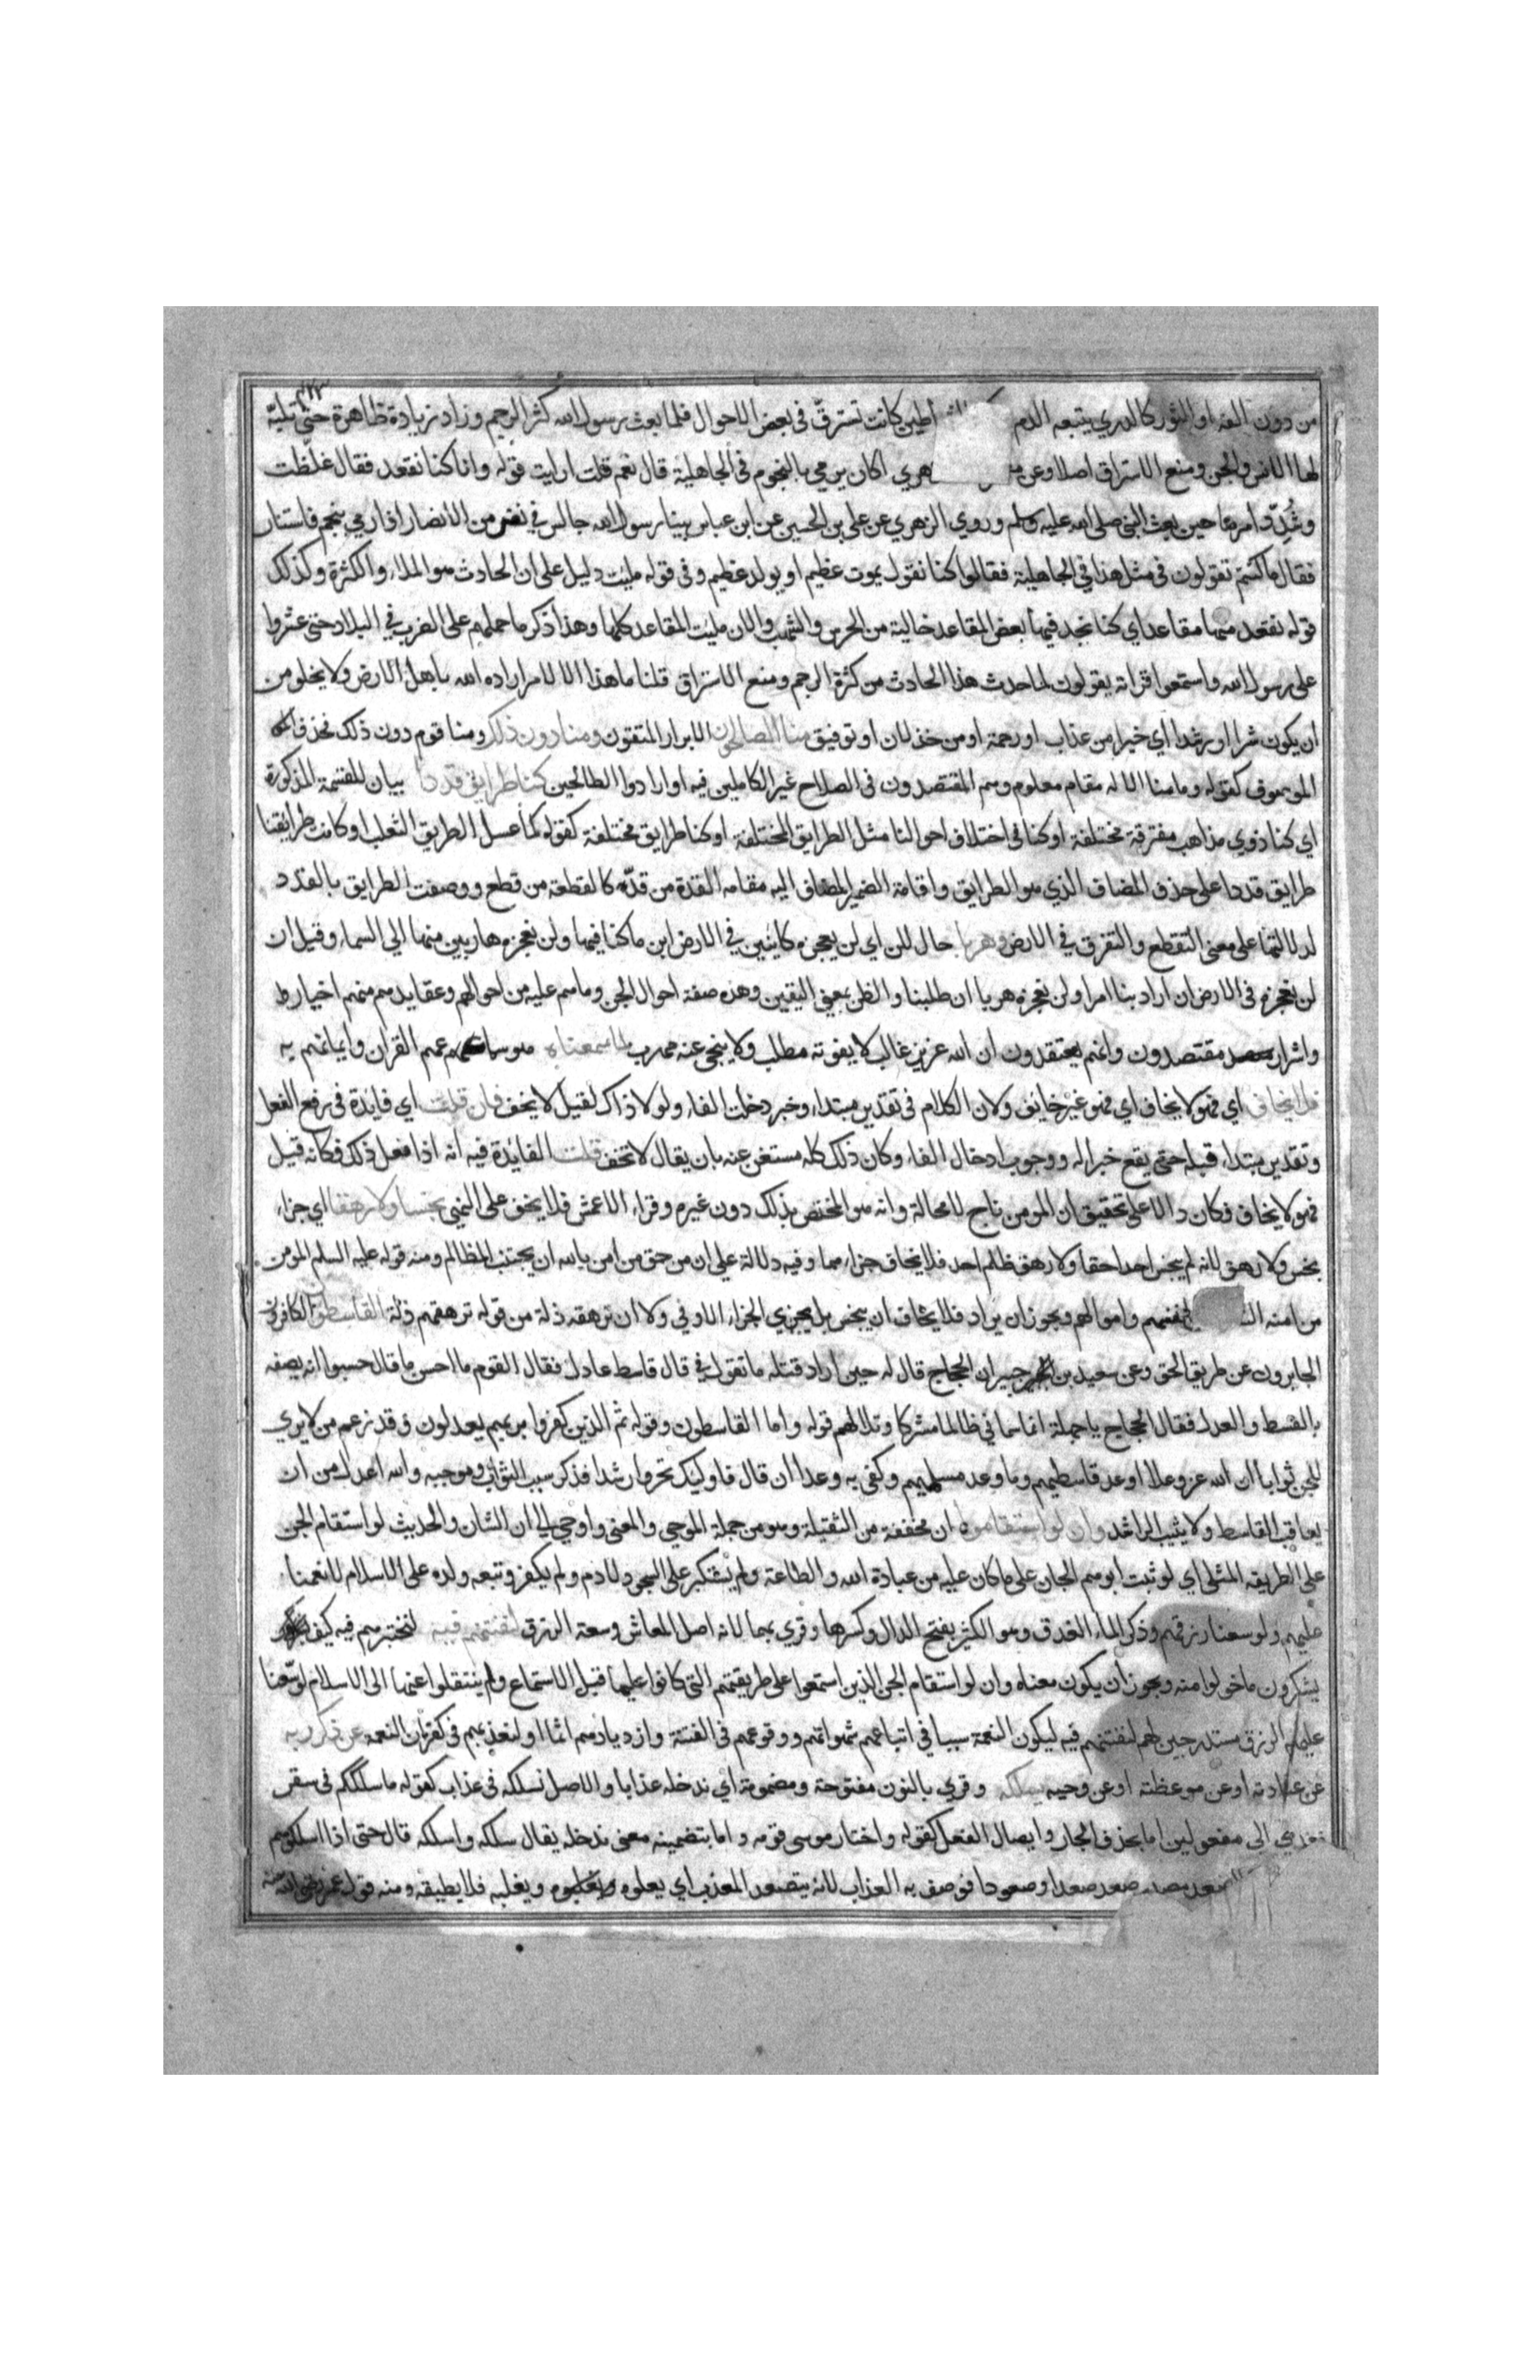 من دون الفه او الثور كالدري يتبعه الدم اطين كانت تسترق في بعض الاحوال فلما بعث رسول الله كثر الرجم وزاد زيادة ظاهرة حتى تنبه
لها الانس والجن ومنع الاستراق اصلا وعن مـ هري اكان يرمي بالنجوم في الجاهلية قال نعم قلت ارايت قوله وانا كنا نقعد فقال غلظت
وشُدّد امرها حين بعث النبي صلى الله عليه وسلم وروي الزهري عن علي بن الحسين عن ابن عباس بينا رسول الله جالس في نفر من الانصار اذ رمي بنجم فاستنار
فقال ما كنتم تقولون في مثل هذا في الجاهلية فقالوا كنا نقول يموت عظيم او يولد عظيم وفي قوله مليت دليل على ان الحادث هو الملاء والكثرة وكذلك
قوله نقعد منها مقاعد اي كنا نجد فيها بعض المقاعد خالية من الحرس والشهب والان مليت المقاعد كلها وهذا ذكر ما حملهم على الضرب في البلاد حتى عثروا
على رسول الله واستمعوا قراته يقولون لما حدث هذا الحادث من كثرة الرجم ومنع الاستراق قلنا ما هذا الا لامر اراده الله باهل الارض ولا يخلو من
ان يكون شرا او رشدا اي خيرا من عذاب او رحمة او من خذلان او توفيق منا الصالحون الابرار المتقون ومنا دون ذلك ومنا قوم دون ذلك فحذف
الموصوف كقوله وما منا الا له مقام معلوم وهم المقتصدون في الصلاح غير الكاملين فيه او ارادوا الطالحين كنا طرايق قددا بيان للقسمة المذكورة
اي كنا ذوي مذاهب مفترقة مختلفة او كنا في اختلاف احوالنا مثل الطرايق المختلفة او كنا طرايق مختلفة كقوله كما عسل الطريق الثعلب او كانت طرايقنا
طرايق قددا على حذف المضاف الذي هو الطرايق واقامة الضمير المضاف اليه مقامه القدة من قدّه كالقطعة من قطع ووصفت الطرايق بالقدد
لدلالتها على معنى التقطع والتفرق في الارض وهربا حال لان اي لن يعجزه كاينين في الارض اين ما كنا فيها ولن نعجزه هاربين منها الي السماء وقيل ان
لن نعجزه في الارض ان اراد بنا امرا ولن نعجزه هربا ان طلبنا والظن بمعنى اليقين وهذه صفة احوال الجن وما هم عليه من احوالهم وعقايدهم منهم اخيار
واشرار مقتصدون وانهم يعتقدون ان الله عزيز غالب لا يفوته مطلب ولا ينجى عنه مهرب لما سمعنا هو سماعهم القران وايمانهم به
فلا يخاف اي فهو لا يخاف اي فهو غير خايف ولان الكلام في تقدير مبتداء وخبر دخلت الفاء ولولا ذاك لقيل لا يخف فان قلت اي فايدة في رفع الفعل
وتقدير مبتداء قبله حتى يقع خبرا له ووجوب ادخال الفاء وكان ذلك كله مستغن عنه بان يقال لا تخف قلت الفائدة فيه انه اذا فعل ذلك فكانه قيل
فهو لا يخاف فكان دالا على تحقيق ان المومن ناج لا محالة وانه هو المختص بذلك دون غيره وقراء الاعمش فلا يخف على النهي بخسا ولا رهقا اي جزاء
بخس ولا رهق لانه لم يبخس احدا حقا ولا رهق ظلم احد فلا يخاف جزاءهما وفيه دلالة على ان من حق من امن بالله ان يجتنب المظالم ومنه قوله عليه السلم المومن
من امنه النا انفسهم واموالهم ويجوز ان يراد فلا يخاف ان يبخس بل يجزي الجزاء الاوفي ولا ان ترهقه ذلة من قوله ترهقهم ذلة القاسطون الكافرون
الجايرون عن طريق الحق وعن سعيد بن جبير ان الحجاج قال له حين اراد قتله ما تقول في قال قاسط عادل فقال القوم ما احسن ما قال حسبوا انه يصفه
بالقسط والعدل فقال الحجاج يا جهلة انما سماني ظالما مشركا وتلا لهم قوله واما القاسطون وقوله ثم الذين كفروا بربهم يعدلون وقد زعم من لا يري
للجن ثوابا ان الله عز وعلا اوعد قاسطيهم وما وعد مسلميهم وكفى به وعدا ان قال فاوليك تحروا رشدا فذكر سبب الثواب وموجبه والله اعدل من ان
يعاقب القاسط ولا يثيب الراشد وان لو استقاموا ان مخففة من الثقيلة وهو من جملة الموحي والمعنى واوحي الي ان الشان والحديث لو استقام الجن
على الطريقه المثلى اي لو ثبت ابوهم الجان على ما كان عليه من عبادة الله والطاعة ولم يستكبر على السجود لادم ولم يكفر وتبعه ولده على الاسلام لانعمنا
عليهم ولوسعنا رزقهم وذكر الماء الغدق وهو الكثير بفتح الدال وكسرها وقري بهما لانه اصل المعاش وسعة الرزق لنفتنهم فيه لنختبرهم فيه كيف
يشكرون ما خولوا منه ويجوز ان يكون معناه وان لو استقام الجن الذين استمعوا على طريقتهم التي كانوا عليها قبل الاستماع ولم ينتقلوا عنها الى الاسلام لوسّعنا
عليهم الرزق مستدرجين لهم لنفتنهم فيه ليكون النعمة سببا في اتباعهم شهواتهم ووقوعهم في الفتنة وازديادهم اثما او لنعذبهم في كفران النعمه عن ذكر ربه
عن عبادته او عن موعظته او عن وحيه يسلكه وقري بالنون مفتوحة ومضمومة اي ندخله عذابا والاصل نسلكه في عذاب كقوله ما سلككم في سقر
فعدي الى مفعولين اما بحذف الجار وايصال الفعل كقوله واختار موسى قومه واما بتضمينه معنى ندخله يقال سلكه واسلكه قال حتى اذا اسلكوهم
صعد صعدا وصعودا فوصف به العذاب لانه يتصعد المعذب اي يعلوه ويغلبه فلا يطيقه ومنه قول عمر رضي الله عنه